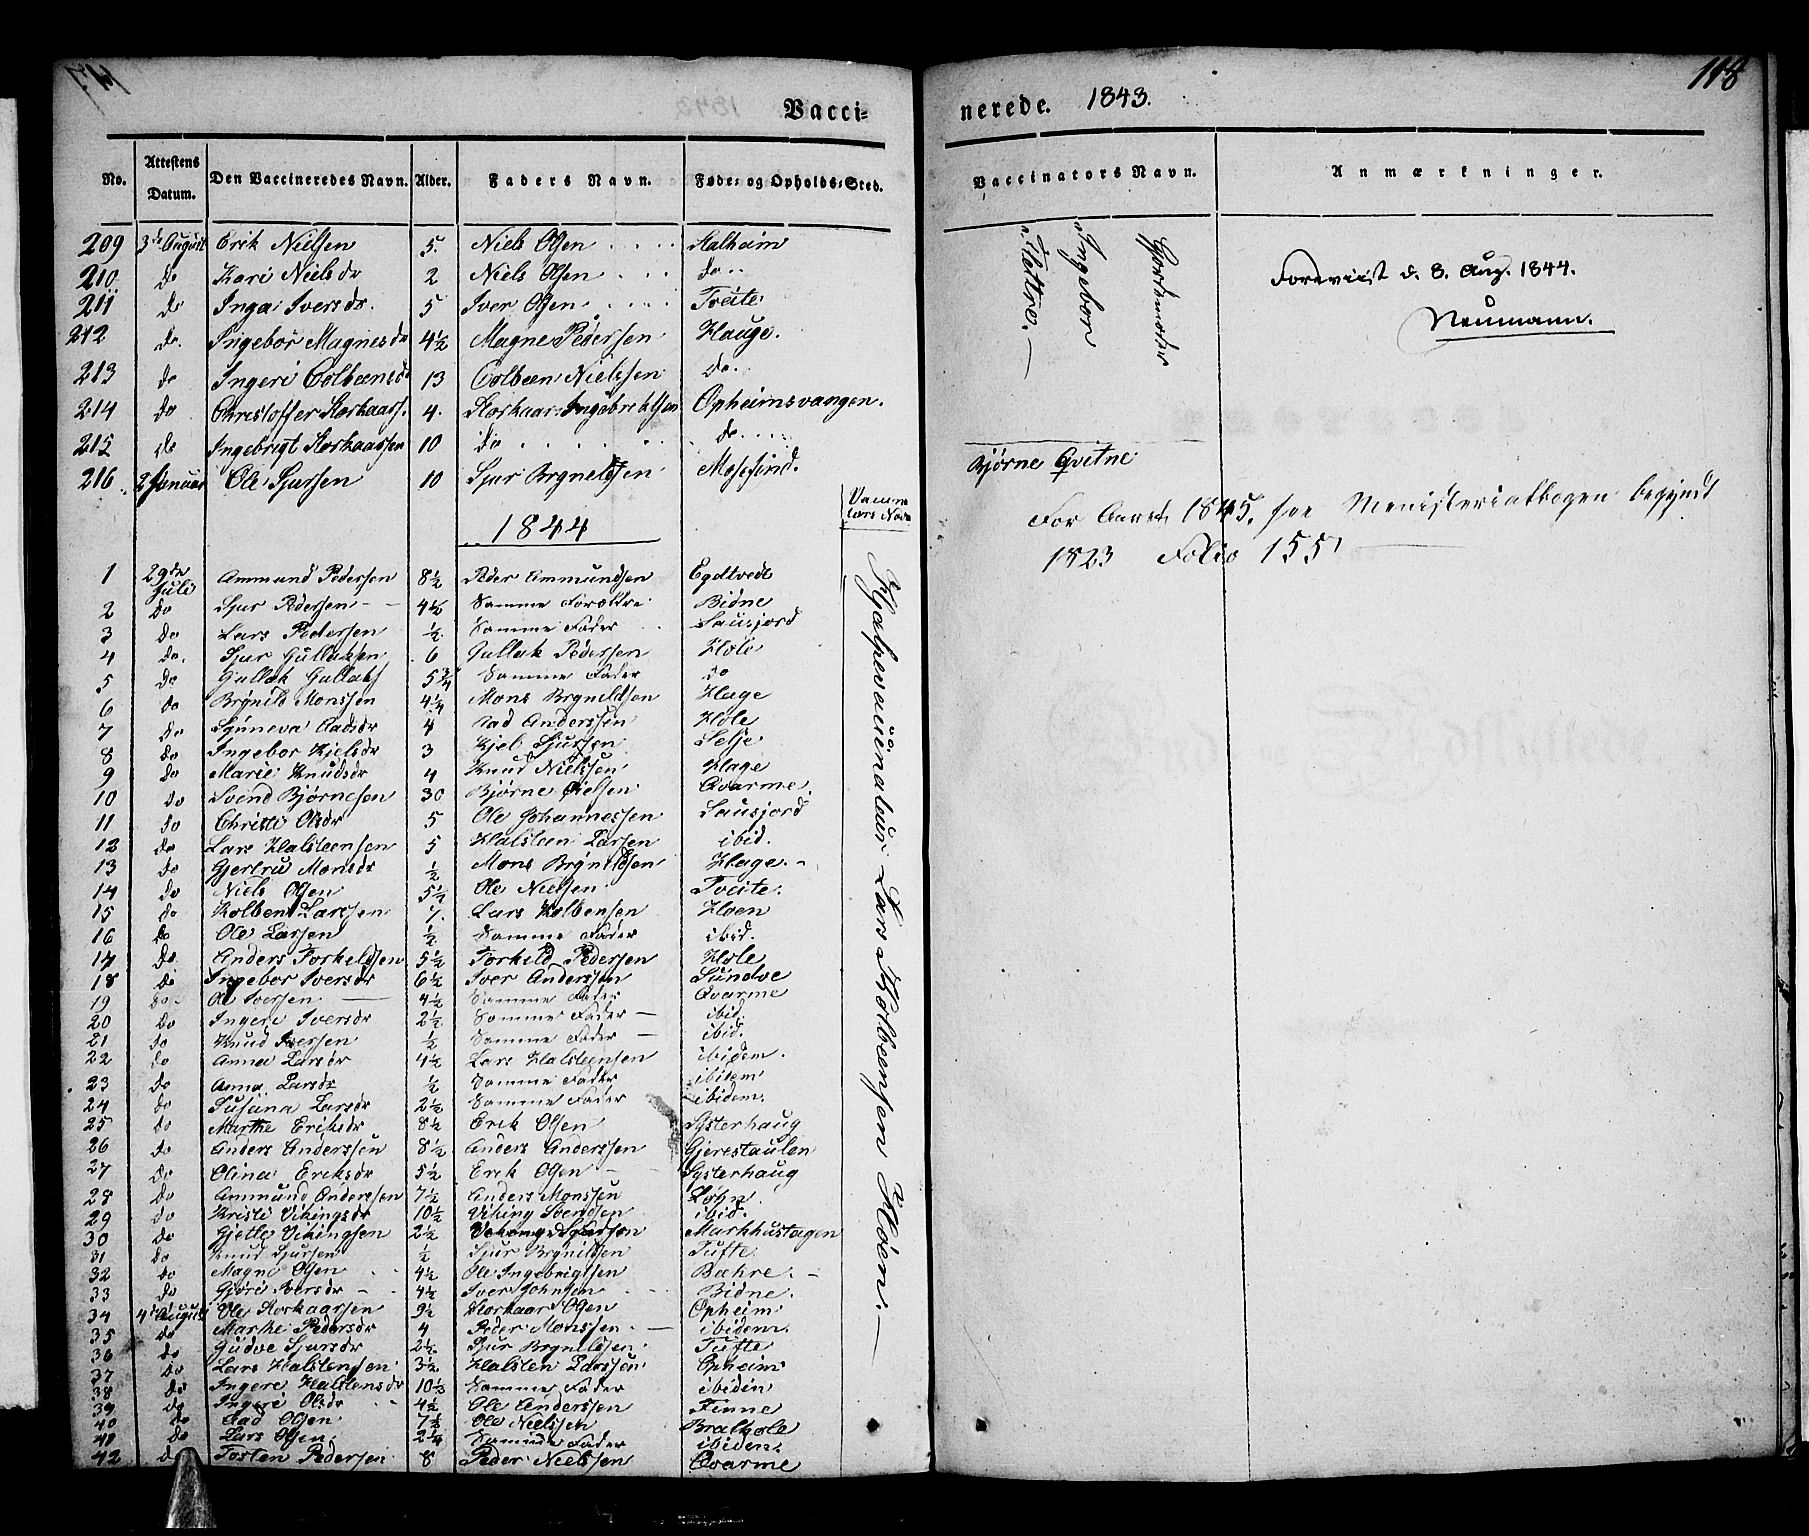 Vacci=
No. Attestens Datum. Den Vaccineredes Navn. Alder. Faders Navn. Føde= og Opholds=Sted.
209 3die August Erik Nielsen 5. Niels Olsen Stalheim
210. do Kari Nielsdr 2 Niels Olsen do
211 do Inga Iversdr. 5 Iver Olsen Tveite
212 do. Ingebor Magnesdr 4½ Magne Pedersen Hauge.
213 do Ingeri Colbeensdr 13 Colbeen Nielssen do.
214 do Christoffer Storkaars. 4. Storkaar Ingebrektsen Opheimsvangen.
215 do Ingebrigt Storkaarsen 10 do do
216 2 Januar Ole Sjursen 10 Sjur Brynildsen Mosefind.
1844
1 29de Juli Ammund Pedersen 8½ Peder Ammundsen Egdtvedt
2 do Sjur Pedersen 4½ Samme Forældre Bidne
3 do Lars Pedersen ½ Samme Fader Sausjord
4 do. Sjur Gullaksen 6 Gullak Pedersen Hole
5 do Gullak Gullaks 5¾ Samme Fader do
6 do Brynild Monssen 4¼ Mons Brynildsen Hage
7 do Synneva Aadsdr 4 Aad Anderssen Hole
8 do Ingebor Kjelsdr 3 Kjel Sjurssen Selje
9 do Marie Knudsdr 4 Knud Nielssen Hage
10 do Svend Bjørnesen 30 Bjørne Qvarme
11 do Christi Olsdr 5 Ole Johannessen Sausjord
12 do Lars Halsteensen 5 Halsteen Larsen ibid.
13 do Gjertru Monsdr ½ Mons Brynildsen Hage.
14 do Niels Olsen 5½ Ole Nielsen Tveite.
15 do Kolben Larssen 7. Lars Kolbensen Hoen
16 do Ole Larsen ½ Samme Fader ibid.
17 do. Anders Torkeldsen 5½ Torkild Pedersen Hole
18 do Ingebor Iversdr 6½ Iver Anderssen Sundve
19 do Ole Iversen 4½ Samme Fader Qvarme
20 do Ingeri Iversdr 2½ Samme Fader ibid.
21 do Knud Iversen ½ Samme Fader ibid.
22 do Anna Larsdr 4½ Lars Halsteensen ibidem.
23 do Anna Larsdr ½ Samme Fader ibidem
24 do Susana Larsdr 2½ Samme Fader ibidem.
25 do Marthe Eriksdr 8½ Erik Olsen Systerhaug
26 do Anders Anderssen 8½ Anders Anderssen Gjerestaulen
27 do Olina Eriksdr 5½ Erik Olsen Systerhaug
28 do Ammund Andersen 7½ Anders Monssen Løhn.
29 do Kristi Vikingsdr 10½ Viking Svendsen ibid.
30 do Gjetle Vikingsen 2½ Markhustagen
31 do Knud Sjursen ½ Sjur Brynildsen Tufte
32 do Magne Olsen 4½ Ole Ingebrigtsen Bæhre.
33 do Gjøri Iversdr 4½ Iver Johnsen Bidne.
34 4de August Ole Storkaarsen 9½ Storkaar Olsen Opheim
35 do Marthe Pedersdr 4 Peder Monssen ibidem.
36 do Gudve Sjursdr 2½ Sjur Brynildsen Tufte
37 do Lars Halstensen 3½ Halsten Larssen Opheim
38 do Ingeri Halstensdr 10½ Samme Fader ibidem
39 do Ingeri Olsdr 4½ Ole Anderssen Finne
40 do Aad Olsen 7½ Ole Nielssen Brathole
41 do Lars Olsen 2¼ Samme Fader ibidem.
42 do Tosten Pedersen 8 Peder Nielssen Qvarme
Hjelpevaccinateur Lars Kolbeensen Høen.
118
nerede. 1843.
Vaccinators Navn. Anmærkninger.
Gjordemoder
Ingebor
Slettre.
Foreviist d. 8. Aug. 1844.
Neumann.
Bjørne Qvitne
For Aaret 1845. see Ministerialbogen begyndt
1823 Folio 155